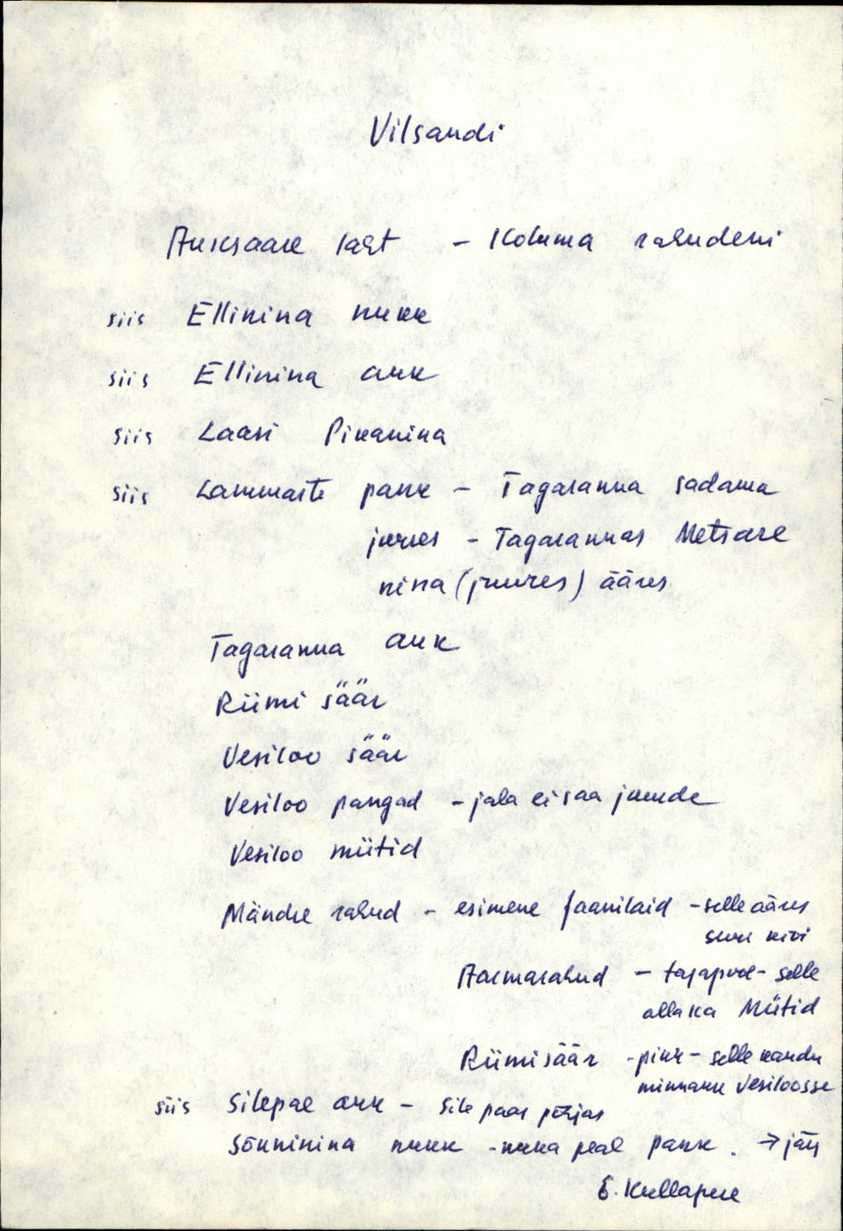 Vilsandi
Anksaare laht - Koluma rahudeni
siis Ellinina nukk
siis Ellinina auk
siis Laasi Pikanina
siis Lammaste pank - Tagaranna sadama
juures - Tagarannas Metsare
nina (juures) ääres
Tagaranna auk
Riimi säär
Vesiloo säär
Vesiloo pangad - jala ei saa juurde
Vesiloo mütid
Mändre rahud - esimene Jaanilaid - selle ääres
suur kivi
Aarmarahud - tagapool - selle
all ka Mütid
Riimisäär - pikk - selle kaudu
minnakse Vesiloosse
siis Silepae auk - Sile paas põhjas
Sõnninina nukk - nuka peal pank. → järg
E. Kullapere